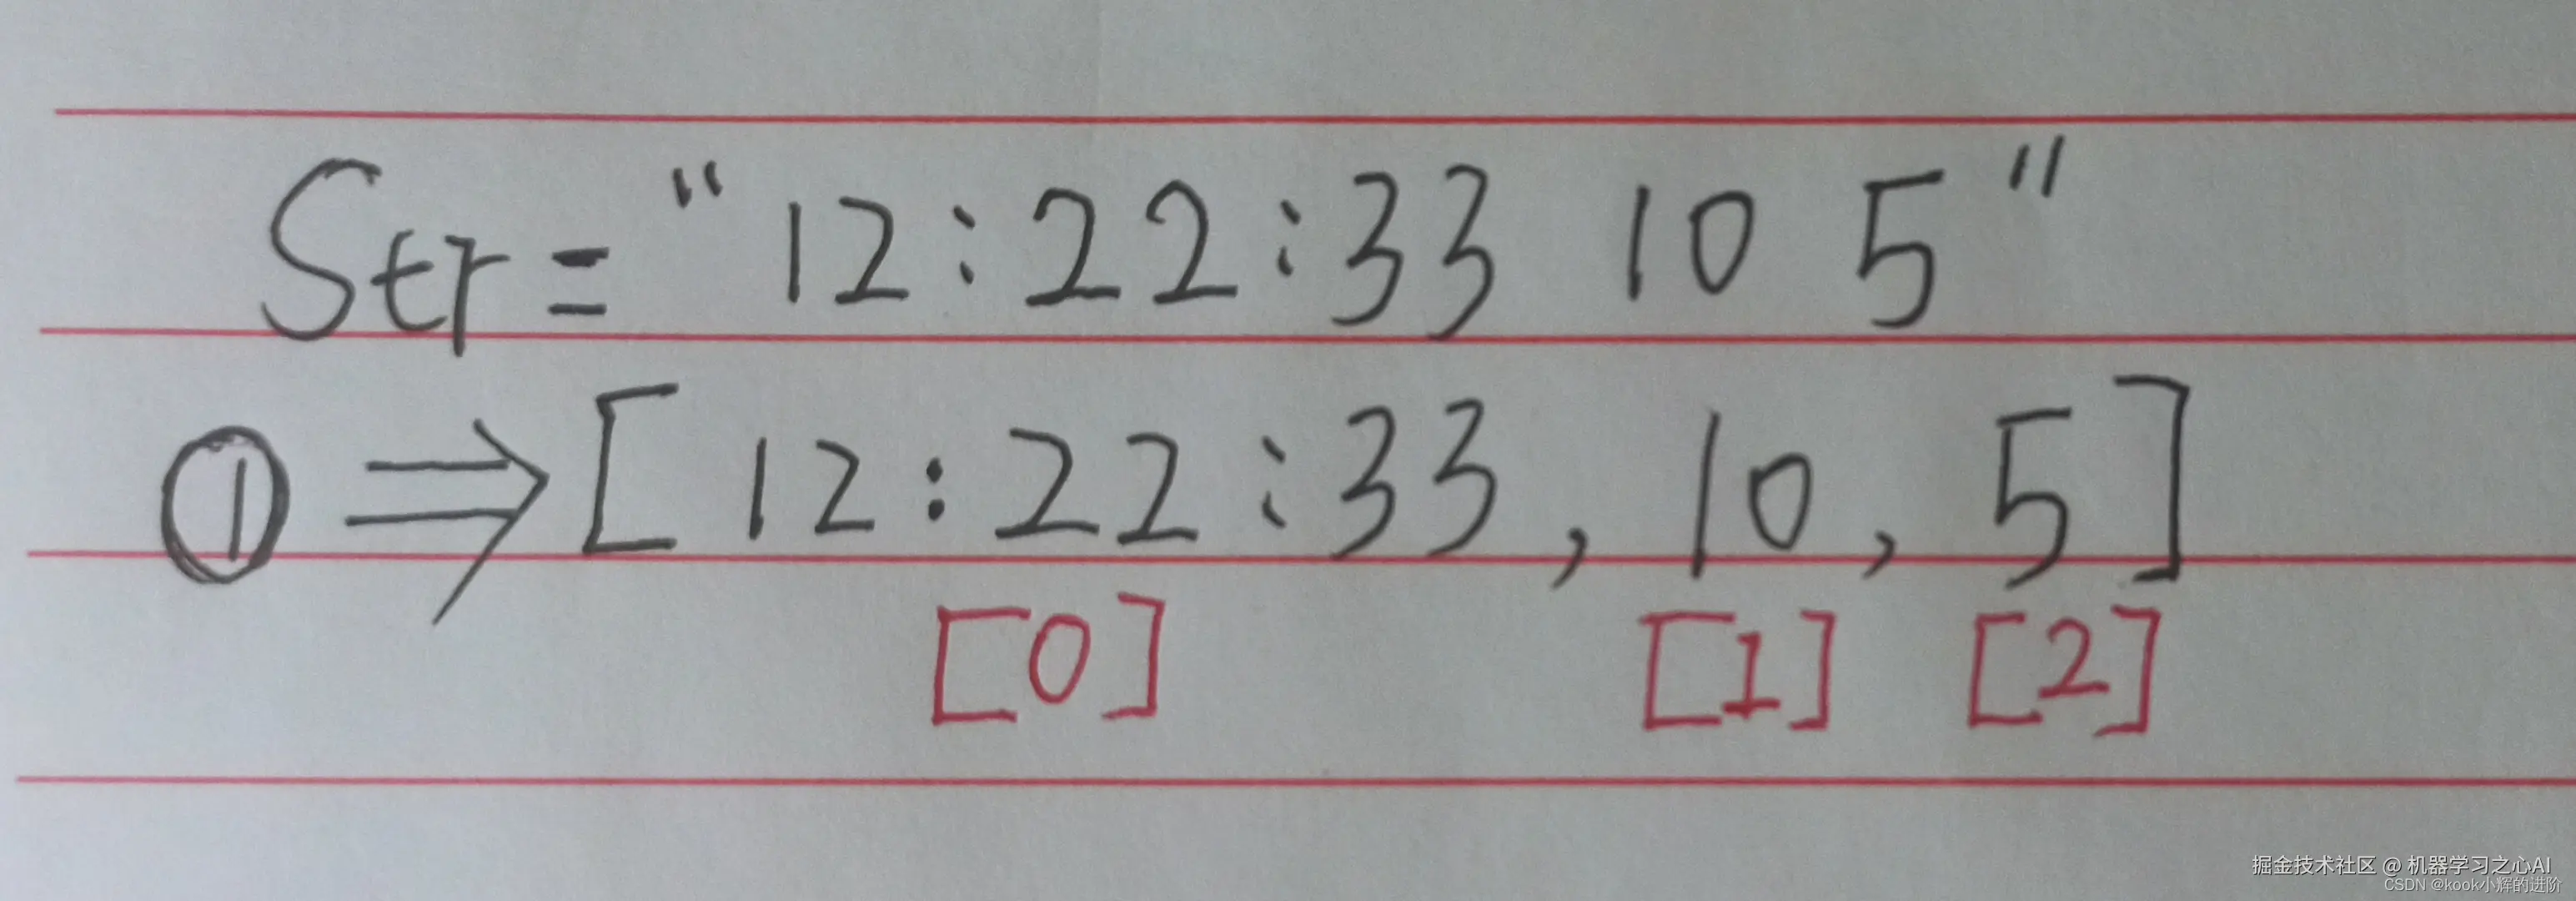 Str = "12:22:33 10 5"
① ⇒ [12:22:33, 10, 5]
[0] [1] [2]
掘金技术社区 @ 机器学习之心AI
CSDN @kook小辉的进阶